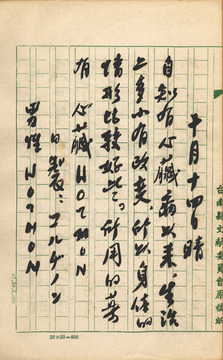 十月十四日晴
自知有心藏病以來、生活
上多小有改变所以身体的
情形比較好些。所用的葯
有心藏HORMON
日製:エルゲノン
男性HORMON
台南縣文獻委員會原稿紙
20×20=400